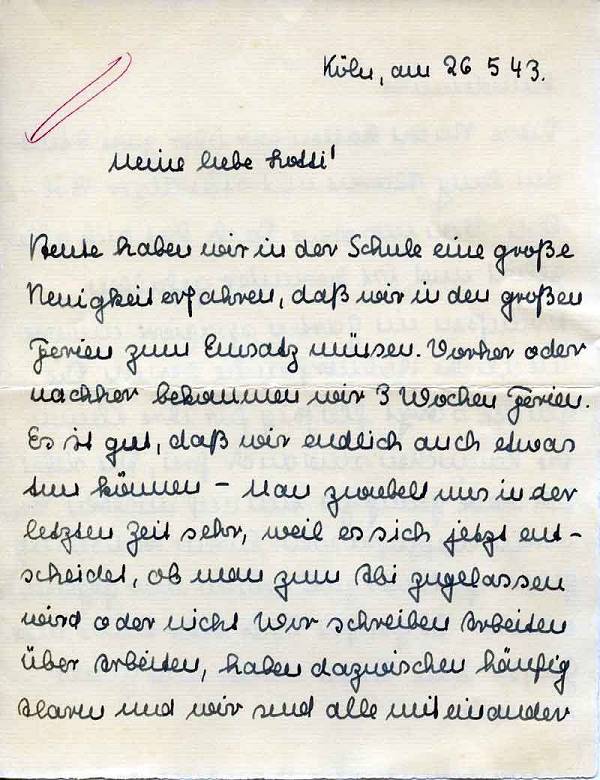 Köln, am 26 5 43.
Meine liebe Lotti!
Heute haben wir in der Schule eine große
Neuigkeit erfahren, daß wir in den großen
Ferien zum Einsatz müssen. Vorher oder
nachher bekommen wir 3 Wochen Ferien.
Es ist gut, daß wir endlich auch etwas
tun können – Man zwiebelt uns in der
letzten Zeit sehr, weil es sich jetzt ent-
scheidet, ob man zum Abi zugelassen
wird oder nicht Wir schreiben Arbeiten
über Arbeiten, haben dazwischen häufig
Alarm und wir sind alle miteinander